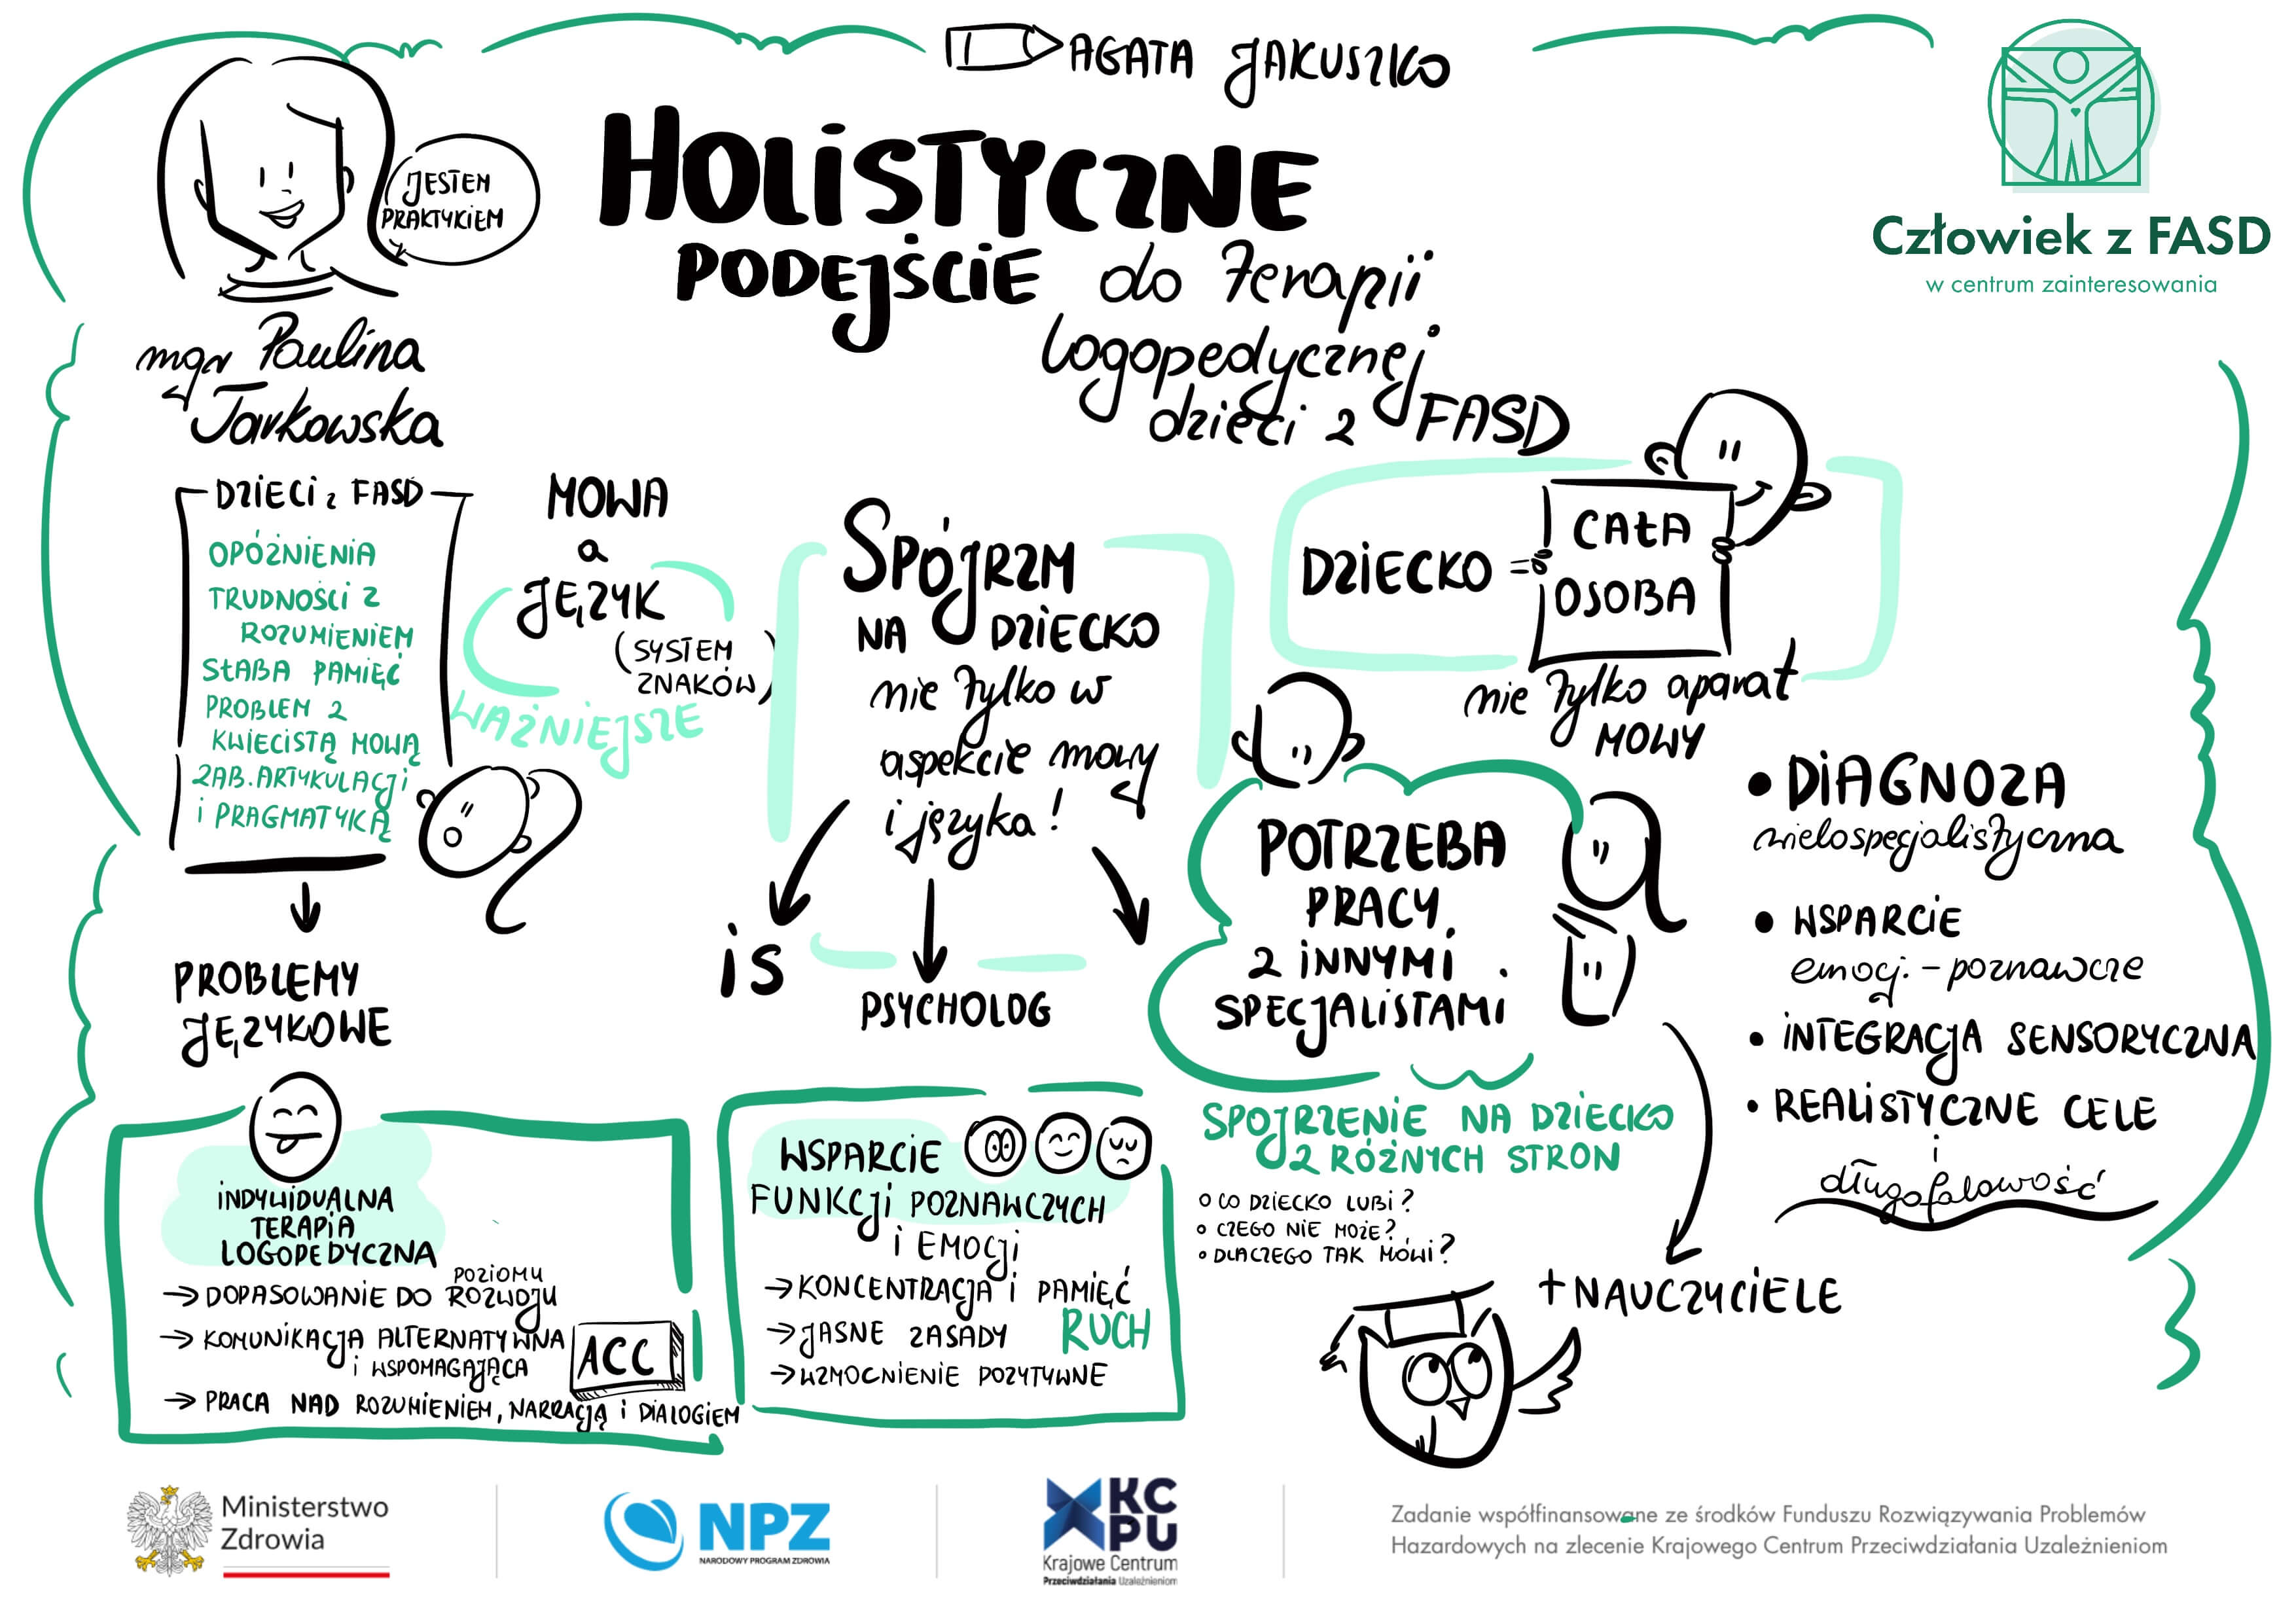 AGATA JAKUSZKO
HOLISTYCZNE
PODEJŚCIE do terapii
logopedycznej
dzieci z FASD
JESTEM
PRAKTYKIEM
mgr Paulina
Tarkowska
Człowiek z FASD
w centrum zainteresowania
DZIECI z FASD
OPÓŹNIENIA
TRUDNOŚCI Z
ROZUMIENIEM
SŁABA PAMIĘĆ
PROBLEM Z
KWIECISTĄ MOWĄ
ZAB. ARTYKULACJI
i PRAGMATYKĄ
PROBLEMY
JĘZYKOWE
MOWA
a
JĘZYK
(SYSTEM
ZNAKÓW)
WAŻNIEJSZE
SPÓJRZM
NA DZIECKO
nie tylko w
aspekcie mowy
i języka!
iS
PSYCHOLOG
DZIECKO =
CAŁA
OSOBA
nie tylko aparat
MOWY
POTRZEBA
PRACY
Z INNYMI
SPECJALISTAMI
SPOJRZENIE NA DZIECKO
Z RÓŻNYCH STRON
CO DZIECKO LUBI?
CZEGO NIE MOŻE?
DLACZEGO TAK MÓWI?
+ NAUCZYCIELE
• DIAGNOZA
wielospecjalistyczna
• WSPARCIE
emocj. - poznawcze
• INTEGRACJA SENSORYCZNA
• REALISTYCZNE CELE
i
długofalowość
INDYWIDUALNA
TERAPIA
LOGOPEDYCZNA
→ DOPASOWANIE DO POZIOMU ROZWOJU
→ KOMUNIKACJA ALTERNATYWNA
i WSPOMAGAJĄCA
ACC
→ PRACA NAD ROZUMIENIEM, NARRACJĄ i DIALOGIEM
WSPARCIE
FUNKCJI POZNAWCZYCH
i EMOCJI
→ KONCENTRACJA i PAMIĘĆ
→ JASNE ZASADY
RUCH
→ WZMOCNIENIE POZYTYWNE
Ministerstwo
Zdrowia
NPZ
NARODOWY PROGRAM ZDROWIA
KC
PU
Krajowe Centrum
Przeciwdziałania Uzależnieniom
Zadanie współfinansowane ze środków Funduszu Rozwiązywania Problemów
Hazardowych na zlecenie Krajowego Centrum Przeciwdziałania Uzależnieniom